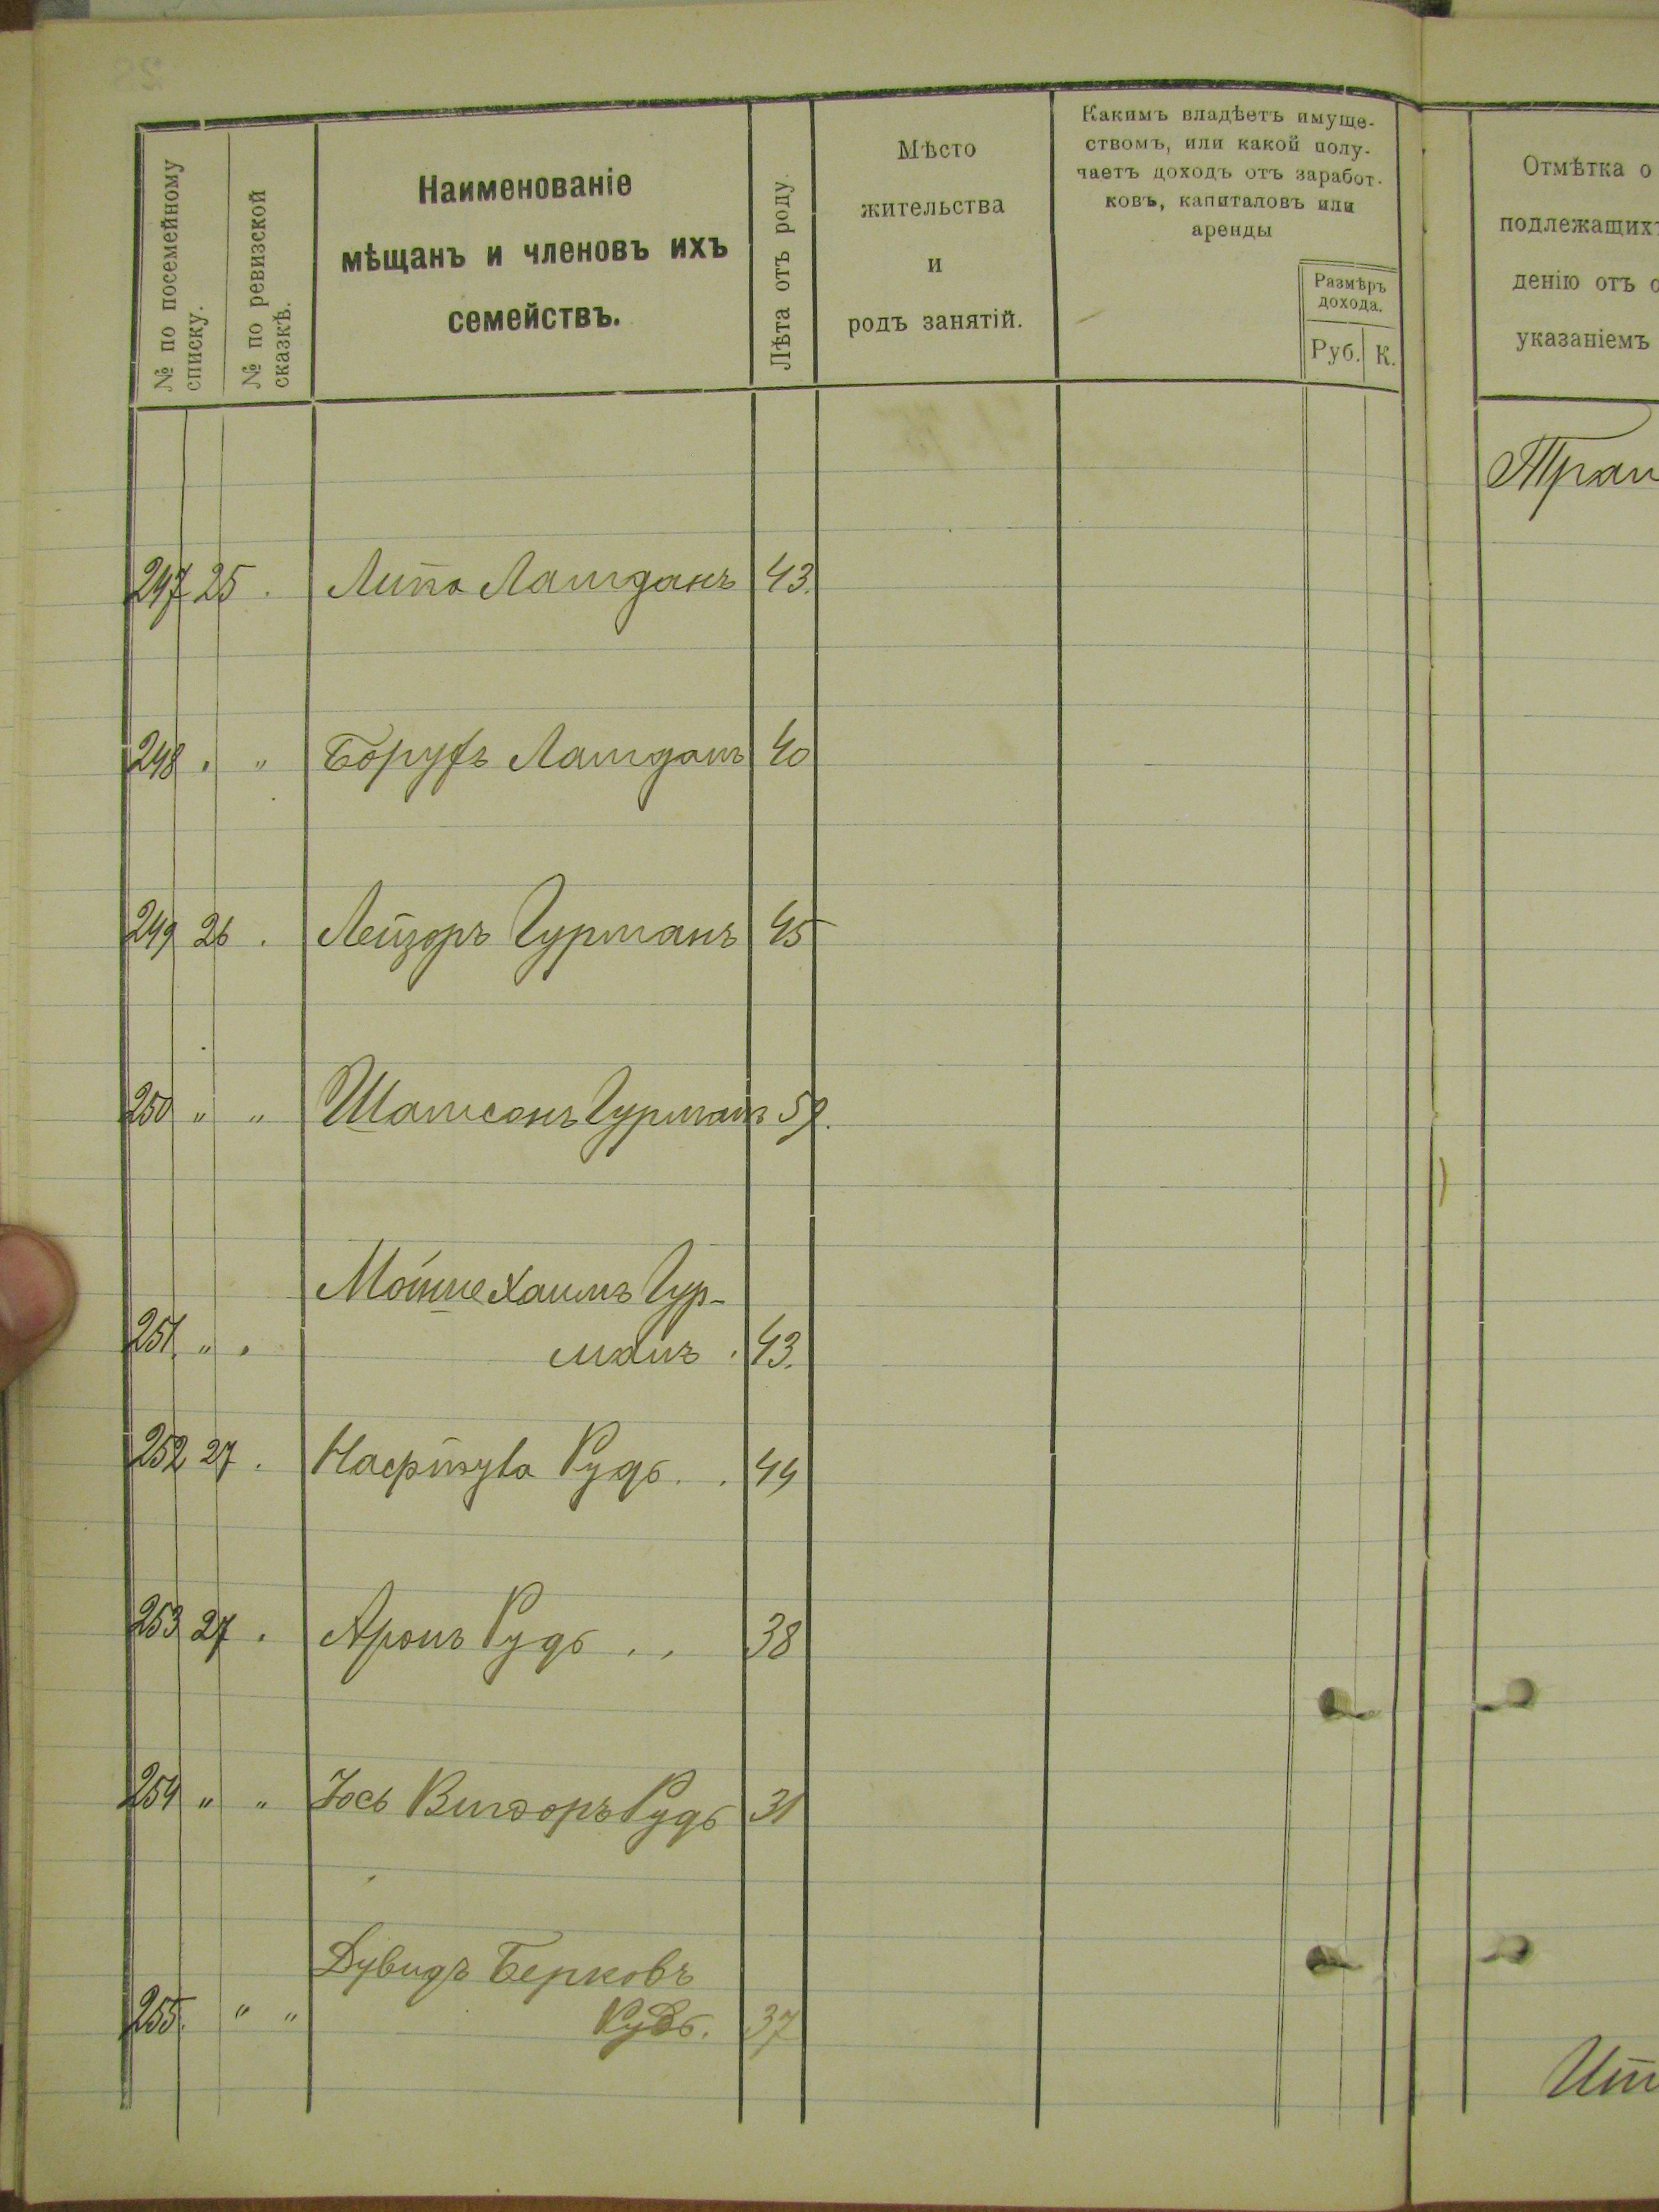 № по посемейному
списку.
№ по ревизской
сказкѣ.
Наименованіе
мѣщанъ и членовъ ихъ
семействъ.
Лѣта отъ роду.
Мѣсто
жительства
и
родъ занятій.
Какимъ владѣетъ имуще-
ствомъ, или какой полу-
чаетъ доходъ отъ заработ-
ковъ, капиталовъ или
аренды
Размѣръ
дохода.
Руб. К.
Отмѣтка о
подлежащихъ
денію отъ о
указаніемъ
Тран
247 25 . Липа Ламданъ 43.
248 . „ Борухъ Ламданъ 40
249 26 . Лейзоръ Гурманъ 45
250 „ „ Шамсонъ Гурманъ 59.
Мошке Хаимъ Гур-
251. „ . манъ . 43.
252 27 . Нафтула Рудь . . 44
253 27 . Аронъ Рудь . . 38
254 „ „ Іось Вигдоръ Рудь 31
Дувидъ Берковъ
255. „ „ Рудь. 37
Ит